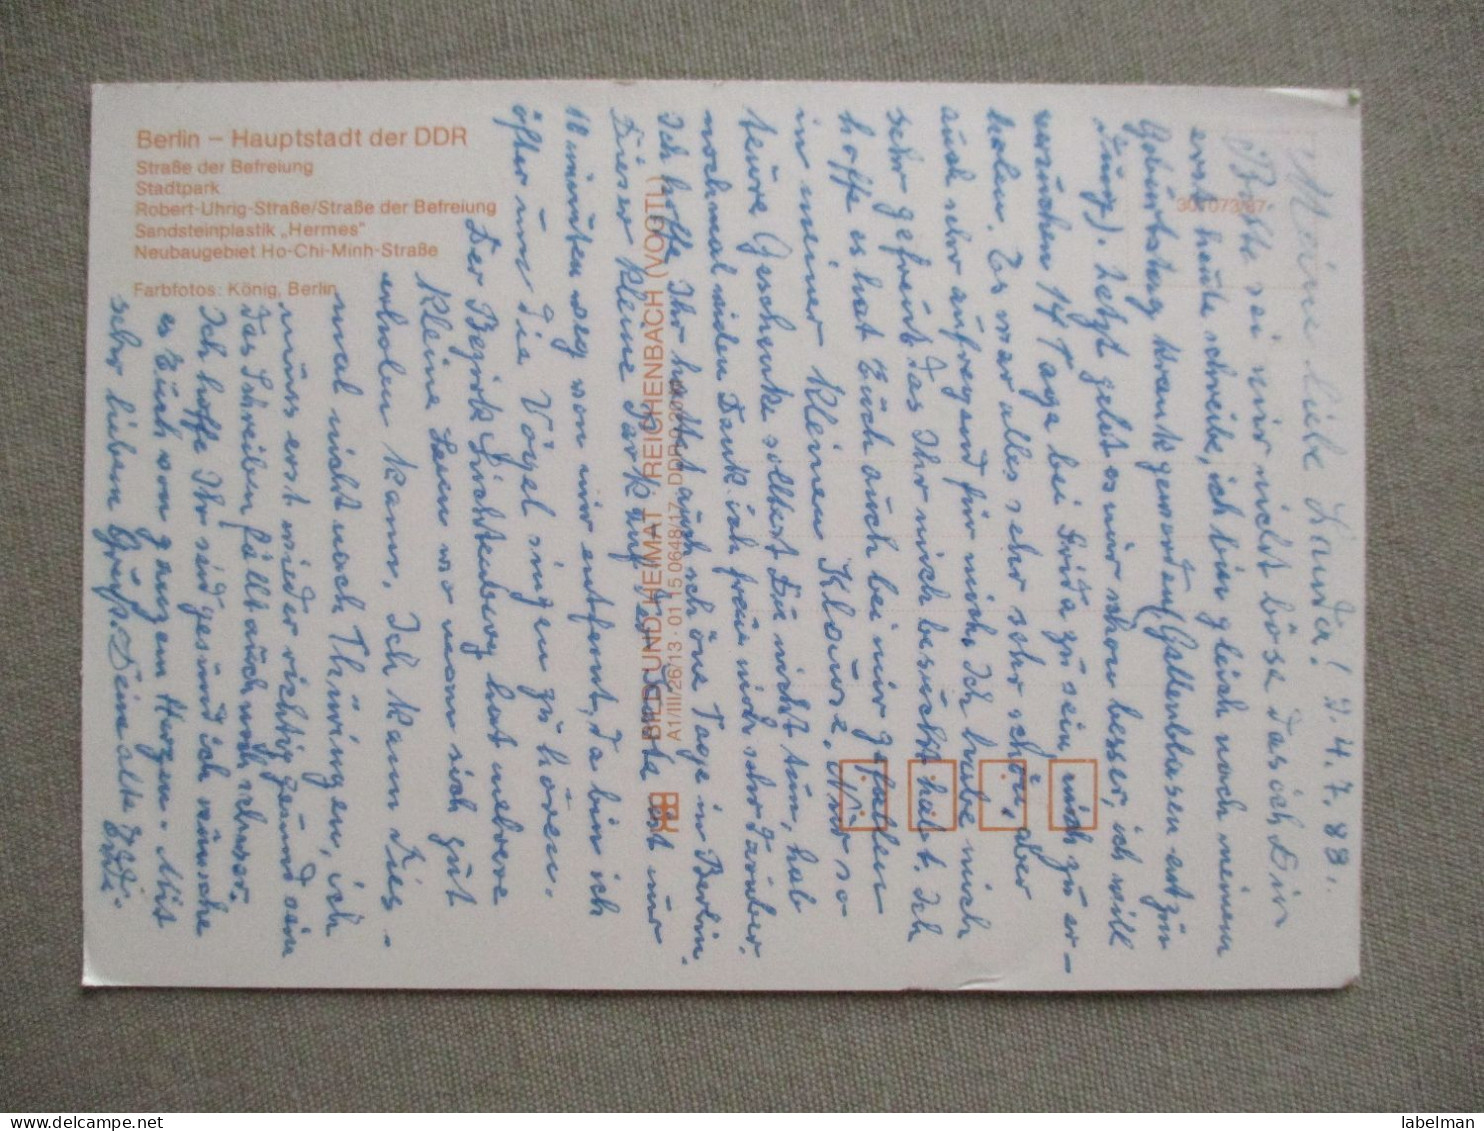 Berlin – Hauptstadt der DDR
Straße der Befreiung
Stadtpark
Robert-Uhrig-Straße/Straße der Befreiung
Sandsteinplastik „Hermes"
Neubaugebiet Ho-Chi-Minh-Straße
Farbfotos: König, Berlin
BILD UND HEIMAT REICHENBACH (VOGTL)
A1/III/26/13 · 01 15 0648/17
301073/87
Meine liebe Landa! d. 4.7.88.
Bitte sei mir nicht böse das ich Dir
erst heute schreibe, ich bin gleich nach meinem
Geburtstag krank geworden (Gallenblasenentzün
dung). Jetzt geht es mir schon besser, ich will
versuchen 14 Tage bei Frida zu sein mich zu er-
holen. Es war alles sehr sehr schön, aber
auch sehr aufregend für mich. Ich habe mich
sehr gefreut das Ihr mich besucht hielt. Ich
hoffe es hat Euch auch bei mir gefallen
in meiner kleinen Klause. Und so
teure Geschenke solltest Du nicht tun, hab
nochmal vielen Dank ich freue mich sehr darüber.
Ich hoffe Ihr hattet auch schöne Tage in Berlin.
Dieser kleine Park auf der Karte ist nur
10 minuten weg von mir entfernt, da bin ich
öfter um die Vögel singen zu hören.
Der Bezirk Lichtenberg hat mehrere
kleine Seen wo man sich gut
erholen kann. Ich kann dies-
mal nicht nach Thüringen, ich
muss erst wieder richtig gesund sein
das Schreiben fällt auch noch schwer.
Ich hoffe Ihr seid gesund ich wünsche
es Euch von ganzem Herzen. Mit
sehr lieben Grüß. Deine alte Edi